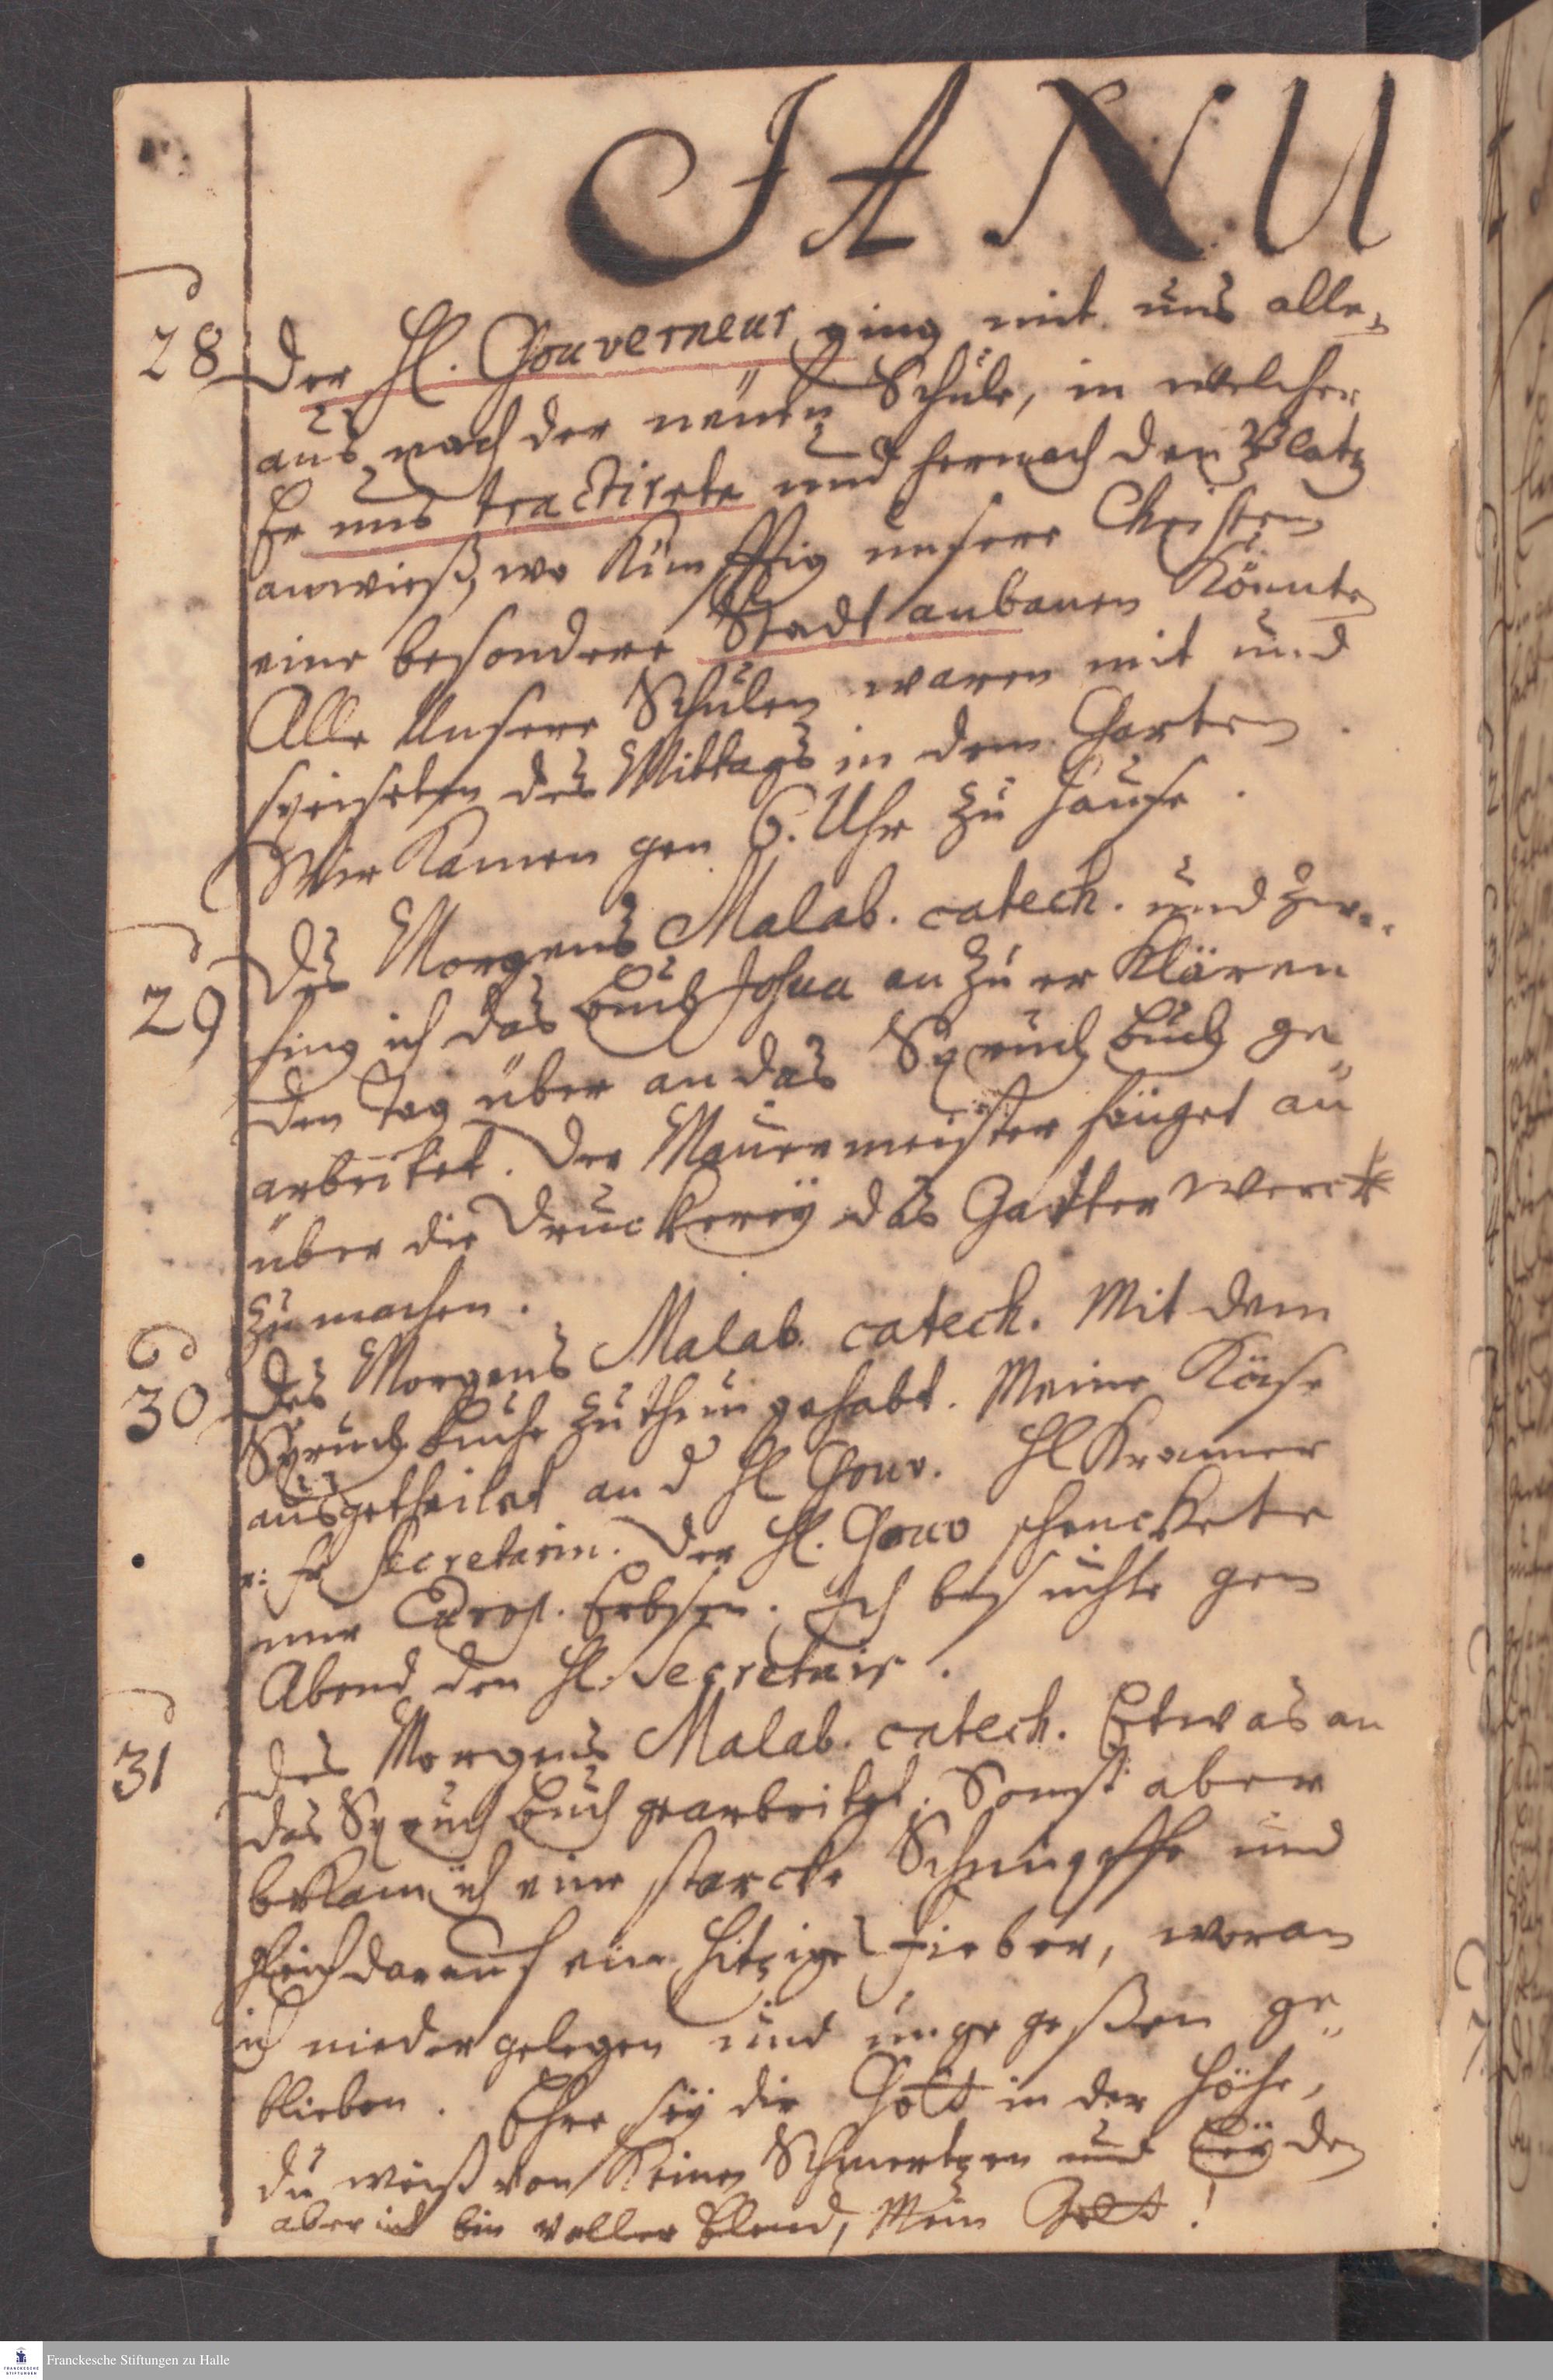 JANU
28 Der H. Gouverneur ging mit uns alle,,
aus nach der neuen Schule, in welcher
Er uns tractirete und hernach den Platz
anwieß, wo künfftig unsere Christen
eine besondere Stadt anbauen könnten
Alle Unsere Schulen waren mit und
speiseten des Mittags in dem Garten.
Wir kamen gen 6. Uhr zu Hause.
29 Des Morgens Malab. catech. und
fing ich das Buch Josua an zu erklären
Den Tag über an das Spruch Buch ge,,
arbeitet. Der Mauermeister fänget an
über die Druckereÿ das Gatterwerck
zu machen.
30 Des Morgens Malab. catech. Mit dem
Spruch Buche zu thun gehabt. Meine Käse
ausgetheilet an d H Gouv. H Kramer
u: Fr Secretarin. Der H. Gouv schenckete
mir Europ. Erbsen. Ich besuchte gen
Abend den H. Secretair.
31 Des Morgens Malab. catech. Etwas an
das Spruch Buch gearbeitet. Sonst aber
bekam ich eine starcke Schnupffe und
gleich darauf ein hitziges Fieber, woran
ich nieder gelegen und ungegeßen ge,,
blieben. Ehre seÿ dir Gott in der Höhe,
du weist von keinen Schmertzen und Leÿden
aber ich bin voller Elend, Mein Gott!
Franckesche Stiftungen zu Halle